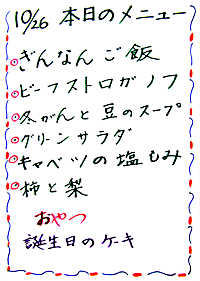 10/26 本日のメニュー
ぎんなんご飯
ビーフストロガノフ
冬がんと豆のスープ
グリーンサラダ
キャベツの塩もみ
柿と梨
おやつ
誕生日のケーキ